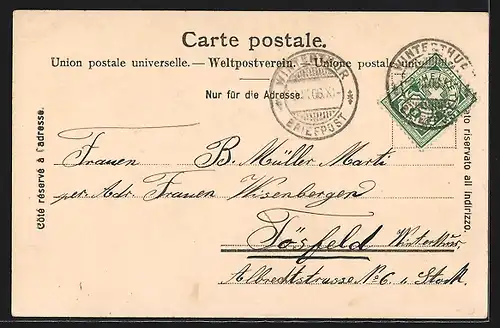 Carte postale.
Union postale universelle. — Weltpostverein. — Unione postale universale.
Nur für die Adresse.
WINTERTHUR
06.XI-
BRIEFPOST
WINTERTHUR
Côté réservé à l'adresse.
lato riservato all indirizzo.
Frauen B. Müller Marti
per Adr. Frauen Wisenbergen
Tössfeld Winterthur,
Albrechtstrasse No 6, II Stock.